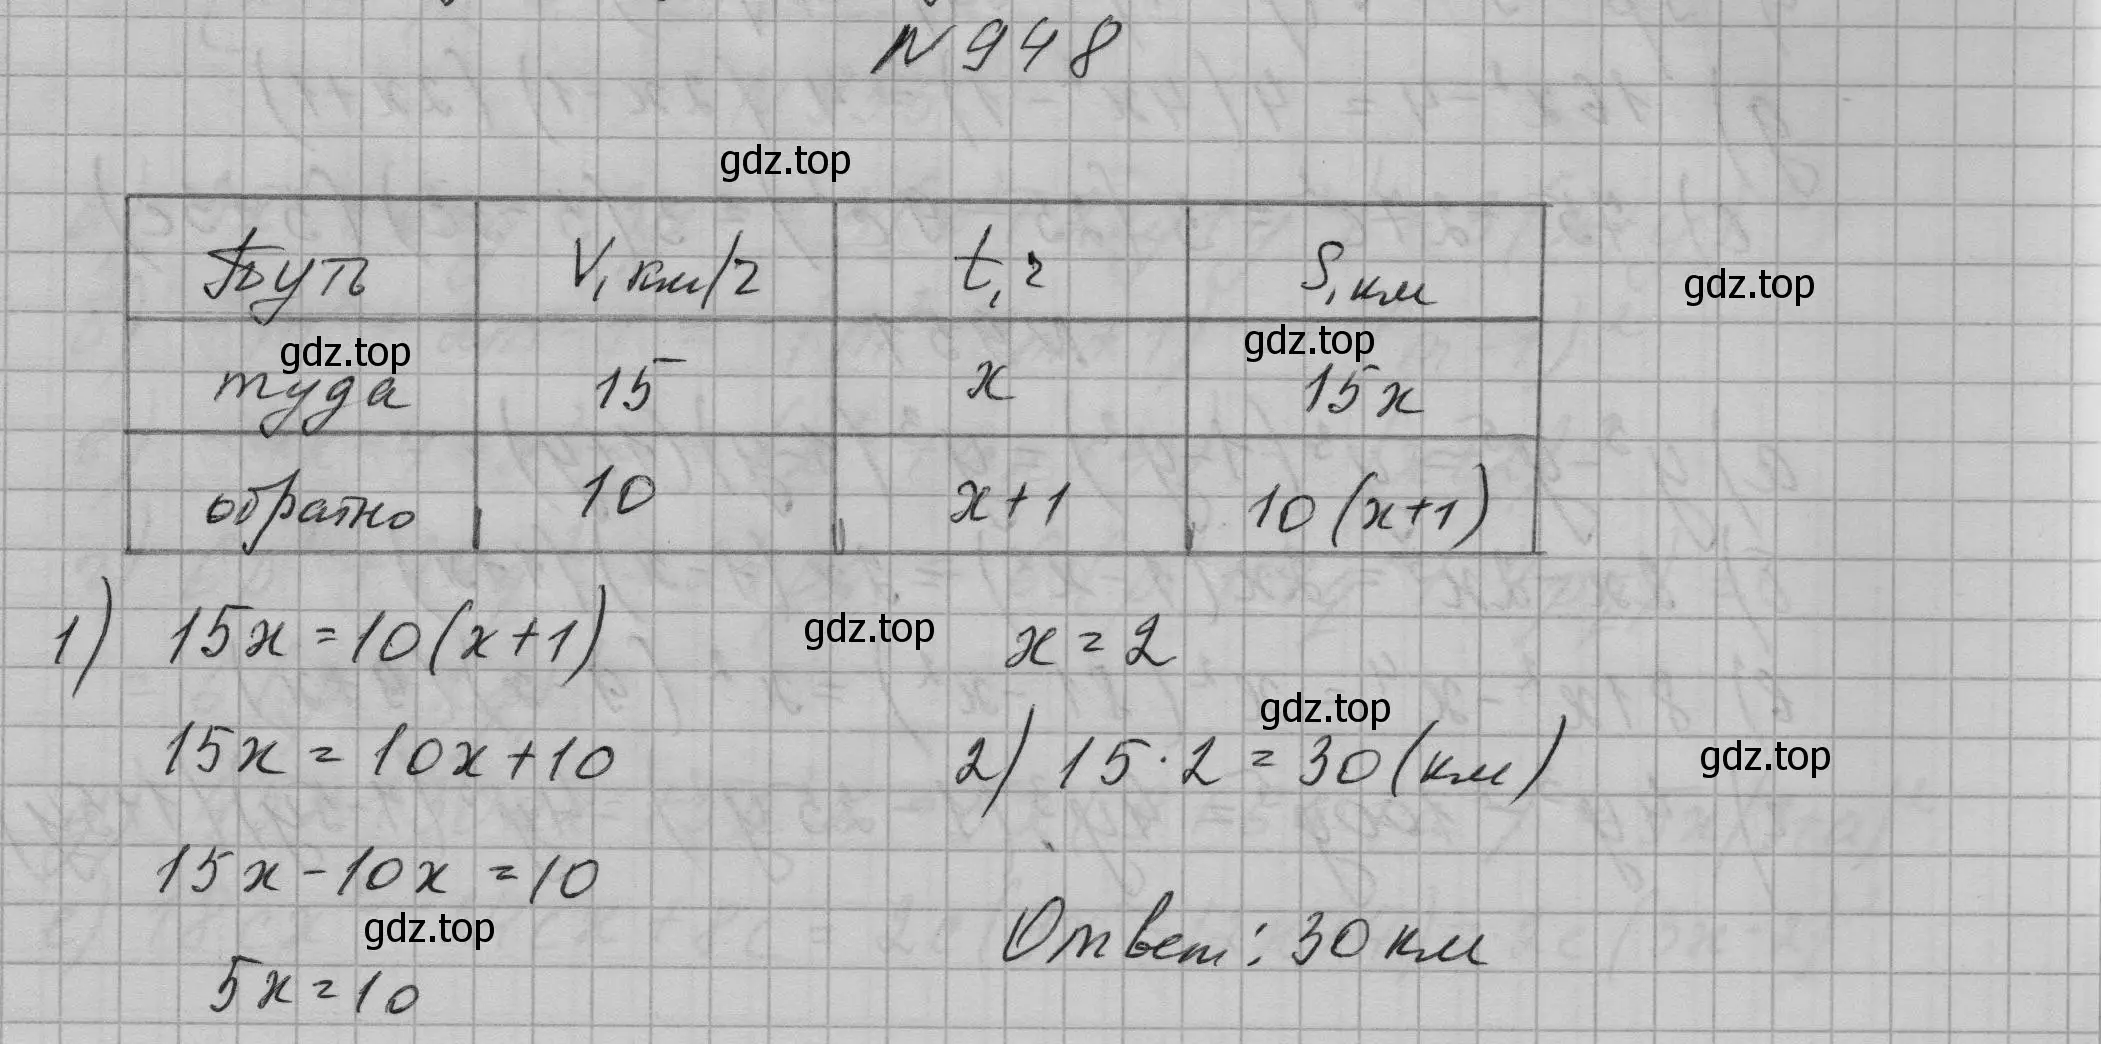 N 948
gdz.top
Путь V, км/ч t, ч S, км
gdz.top
gdz.top gdz.top
туда 15 x 15x
обратно 10 x+1 10(x+1)
1) 15x=10(x+1) gdz.top x=2
15x=10x+10
gdz.top
2) 15·2=30(км) gdz.top
15x-10x=10
gdz.top
Ответ: 30 км
5x=10